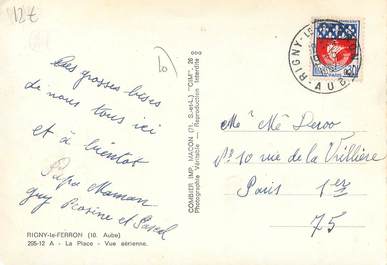 12€
10
Des grosses bises
de nous tous ici
et à bientôt
Papa Maman
guy Rosine et
RIGNY-le-FERRON (10. Aube)
295-12 A - La Place - Vue aérienne.
COMBIER IMP. MACON (71. S.-et-L.) "CIM" 26
Photographie Véritable — Reproduction Interdite
RIGNY-LE-
AUBE
PARIS
0,30
Mr Me Deroo
10 rue de la Vrillière
Paris 1er
75